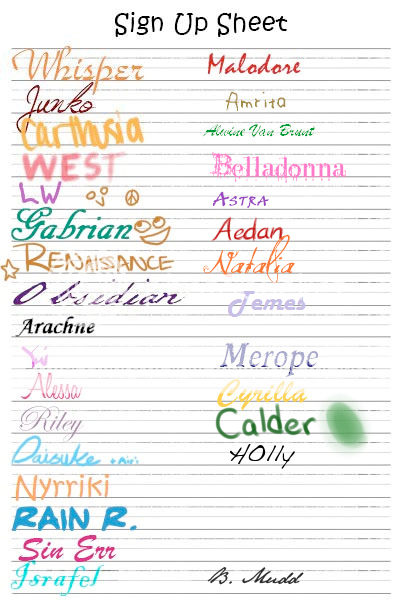 Sign Up Sheet
Whisper
Junko
Carthusia
WEST
LW
Gabrian
RENAISSANCE
Obsidian
Arachne
Yui
Alessa
Riley
Daisuke + Airi
Nyrriki
RAIN R.
Sin Err
Israfel
Malodore
Amrita
Alwine Van Brunt
Belladonna
ASTRA
Aedan
Natalia
Jemes
Merope
Cyrilla
Calder
HOlly
B. Mudd